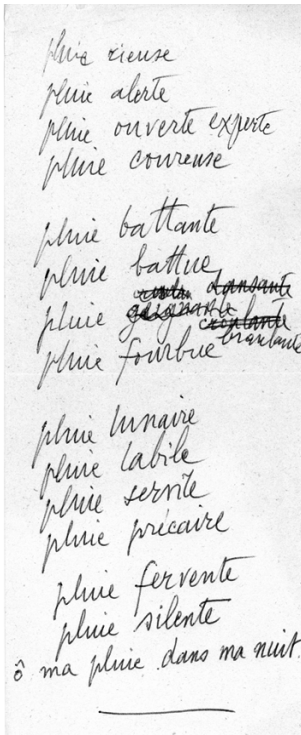 pluie rieuse
pluie alerte
pluie ouverte experte
pluie coureuse
pluie battante
pluie battue
dansante
pluie
pluie fourbue
pluie lunaire
pluie labile
pluie servile
pluie précaire
pluie fervente
pluie silente
ô ma pluie dans ma nuit.